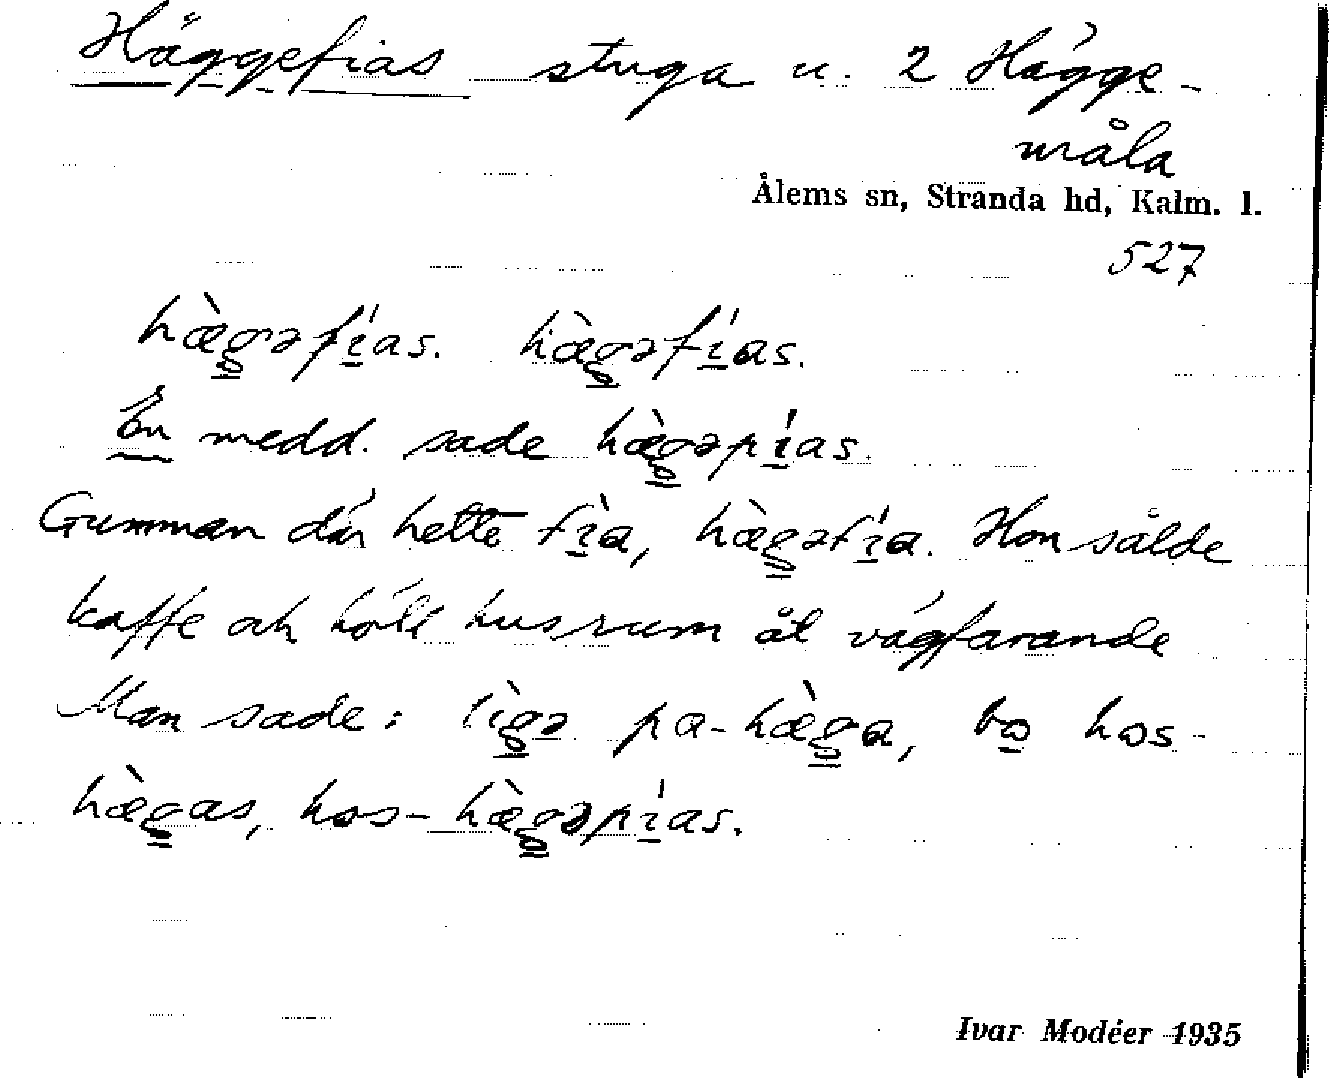 Häggefias stuga u. 2 Hägge-
måla
Ålems sn, Stranda hd, Kalm. l.
527
hæ̀gəfías. hæ̀gəfías.
En medd. sade hæ̀gəpías.
Gumman där hette fìa, hæ̀gəfía. Hon sålde
kaffe och höll husrum åt vägfarande
Man sade: lìgə pa-hæ̀ga, bo hos-
hæ̀gas, hos-hæ̀gəpías.
Ivar Modéer 1935